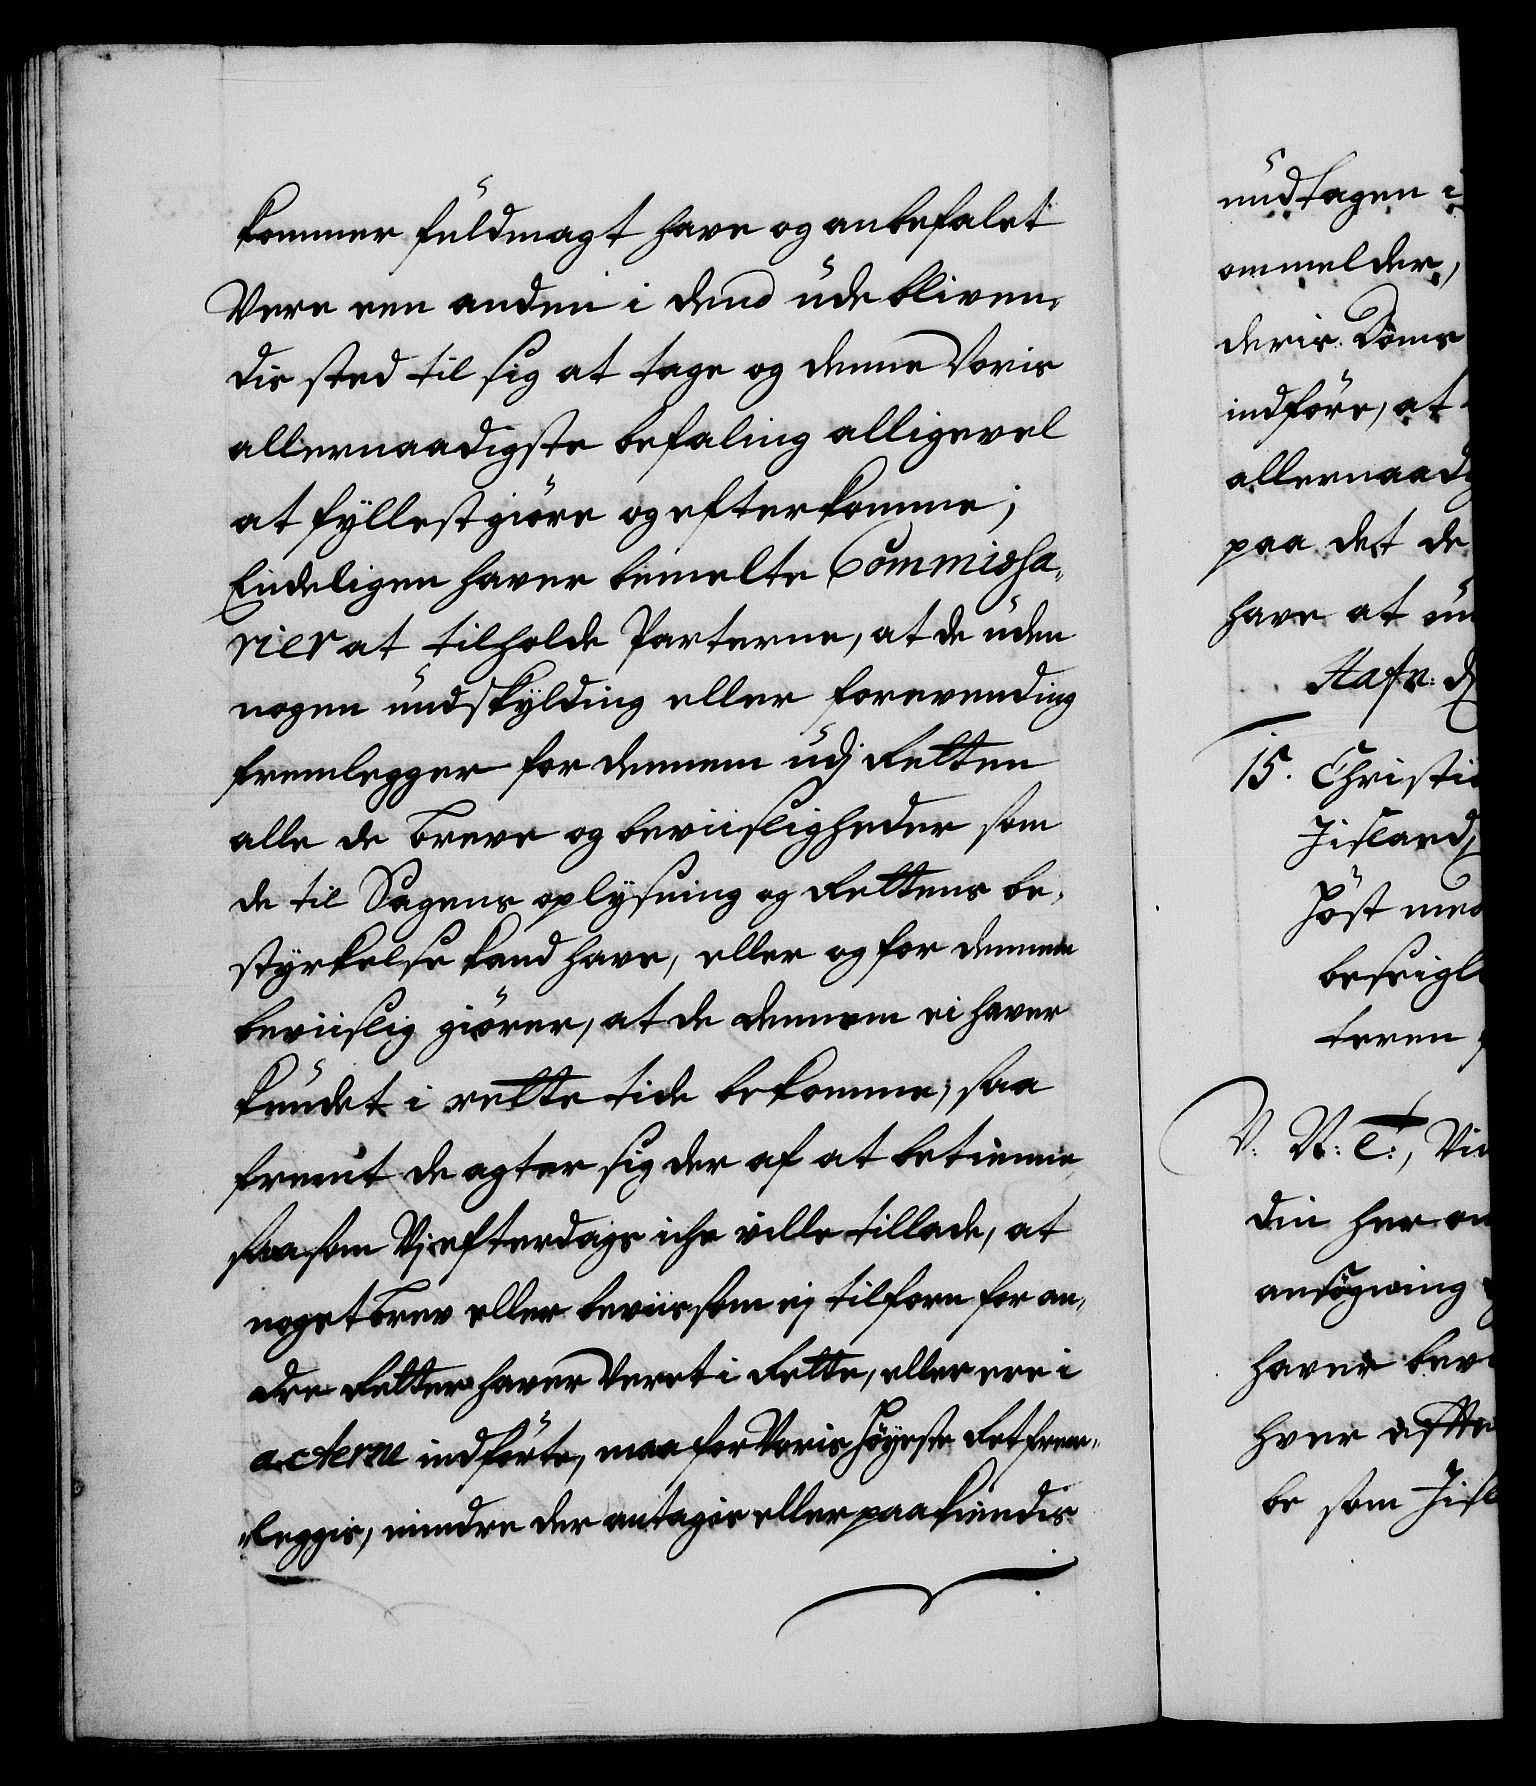 kommer fuldmagt have og anbefalet
Vere een anden i dend udebliven-
dis sted til sig at tage og denne Voris
allernaadigste befaling alligevel
at fyllestgiøre og efterkomme;
Endeligen haver bemelte Commissa-
rier at tilholde Parterne, at de uden
nogen undskylding eller forevending
fremlegger for dennem udj Retten
alle de breve og beviisligheder som
de til Sagens oplysning og Rettens be-
styrkelse kand have, eller og for dennem
beviislig giører, at de dennem ei haver
kundet i rette tide bekomme, saa
fremt de agter sig der af at betienne,
saasom Vj efterdags iche ville tillade, at
noget brev eller beviis som ej tilforn for an-
dre Retter haver Veret i Rette, eller ere i
acterne indførte, maa for Voris Høyeste Ret frem-
leggis, mindre der antagis eller paakiendis
undtagen i
ommelder,
deris Doms
indføre, at
allernaad
paa det de
have at un
Hafn: d
15. Christi
Jisland,
Høst med
beseigl
teren
V: N: C:, Vid
din her on
ansøgning
haver bevi
hver aff
be som Jisl